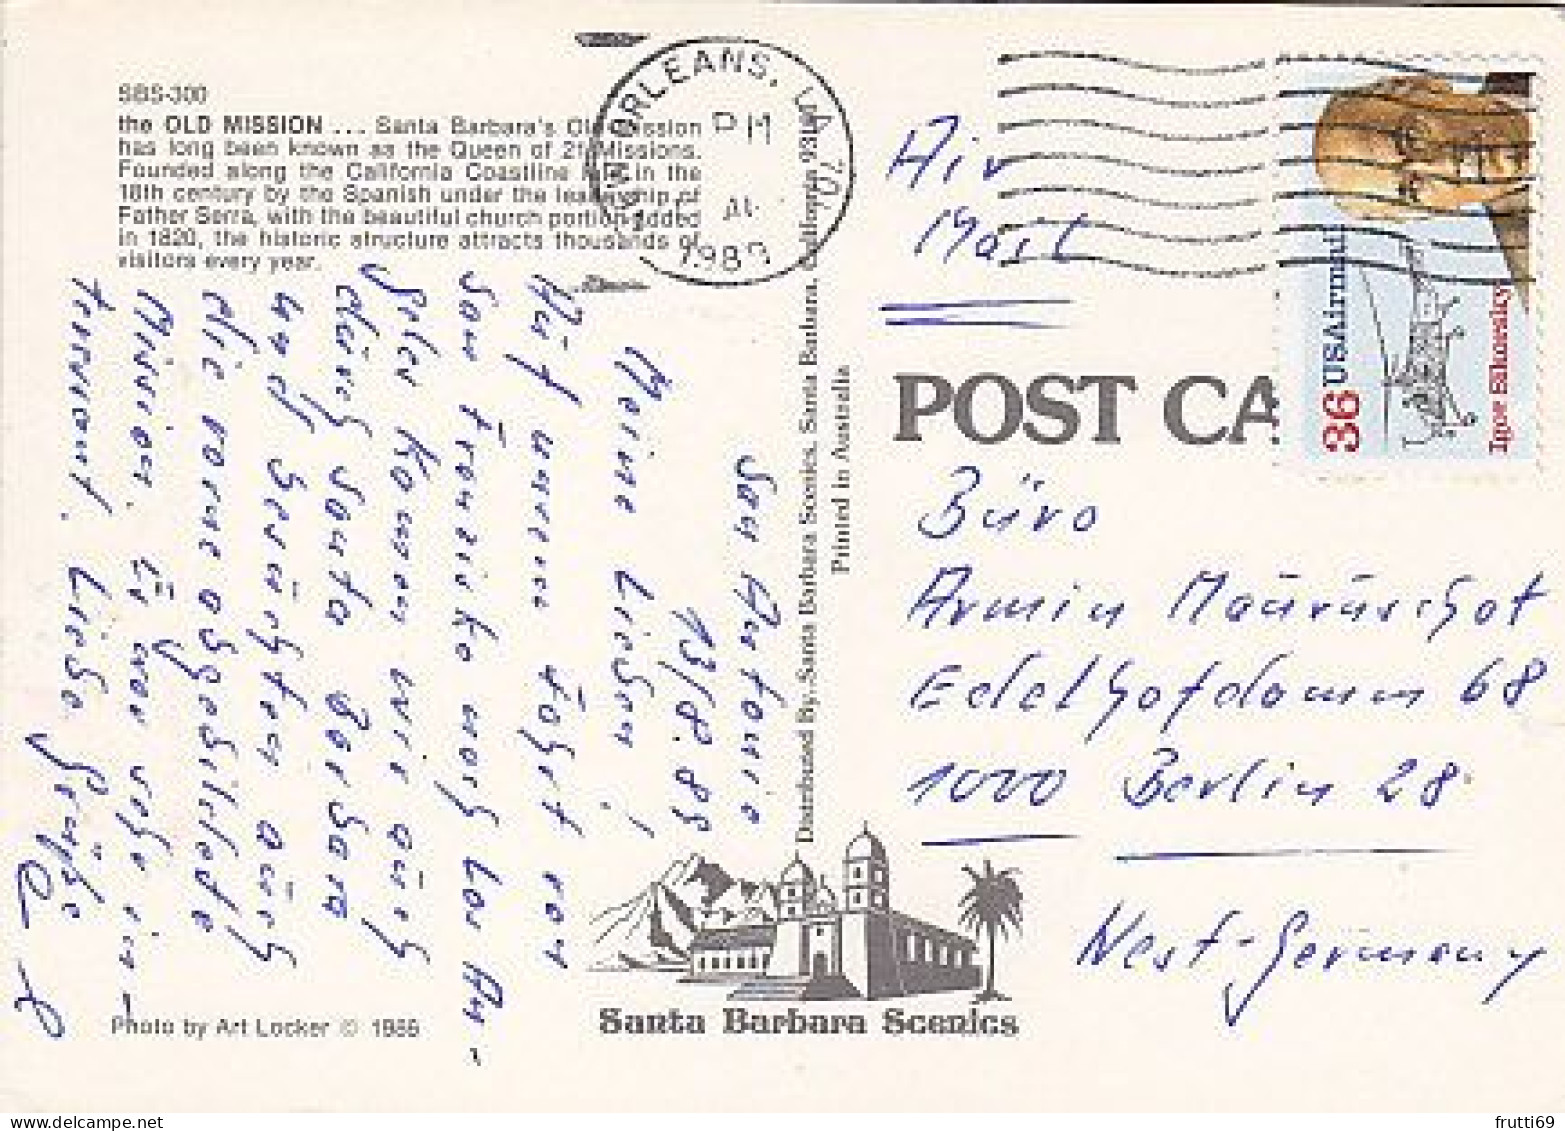 SBS-300
the OLD MISSION ... Santa Barbara's Old Mission
has long been known as the Queen of 21 Missions.
Founded along the California Coastline in the
18th century by the Spanish under the leadership of
Father Serra, with the beautiful church portion added
in 1820, the historic structure attracts thousands of
visitors every year.
San Antonio
13/8.89
Meine Lieben!
Auf unserer Fahrt von
San Franzisko nach Los An-
geles kamen wir auch
durch Santa Barbara
und besuchten auch
die vorne abgebildete
Mission. Es war sehr in-
teressant. Liebe Grüße
Photo by Art Locker © 1986
Distributed By: Santa Barbara Scenics, Santa Barbara, California
Printed in Australia
Santa Barbara Scenics
ORLEANS, LA 701
PM
1989
Air
Mail
POST CA
36 USAirmail
Igor Sikorsky
Büro
Armin
Edelhofdamm 68
1000 Berlin 28
West-Germany
frutti69